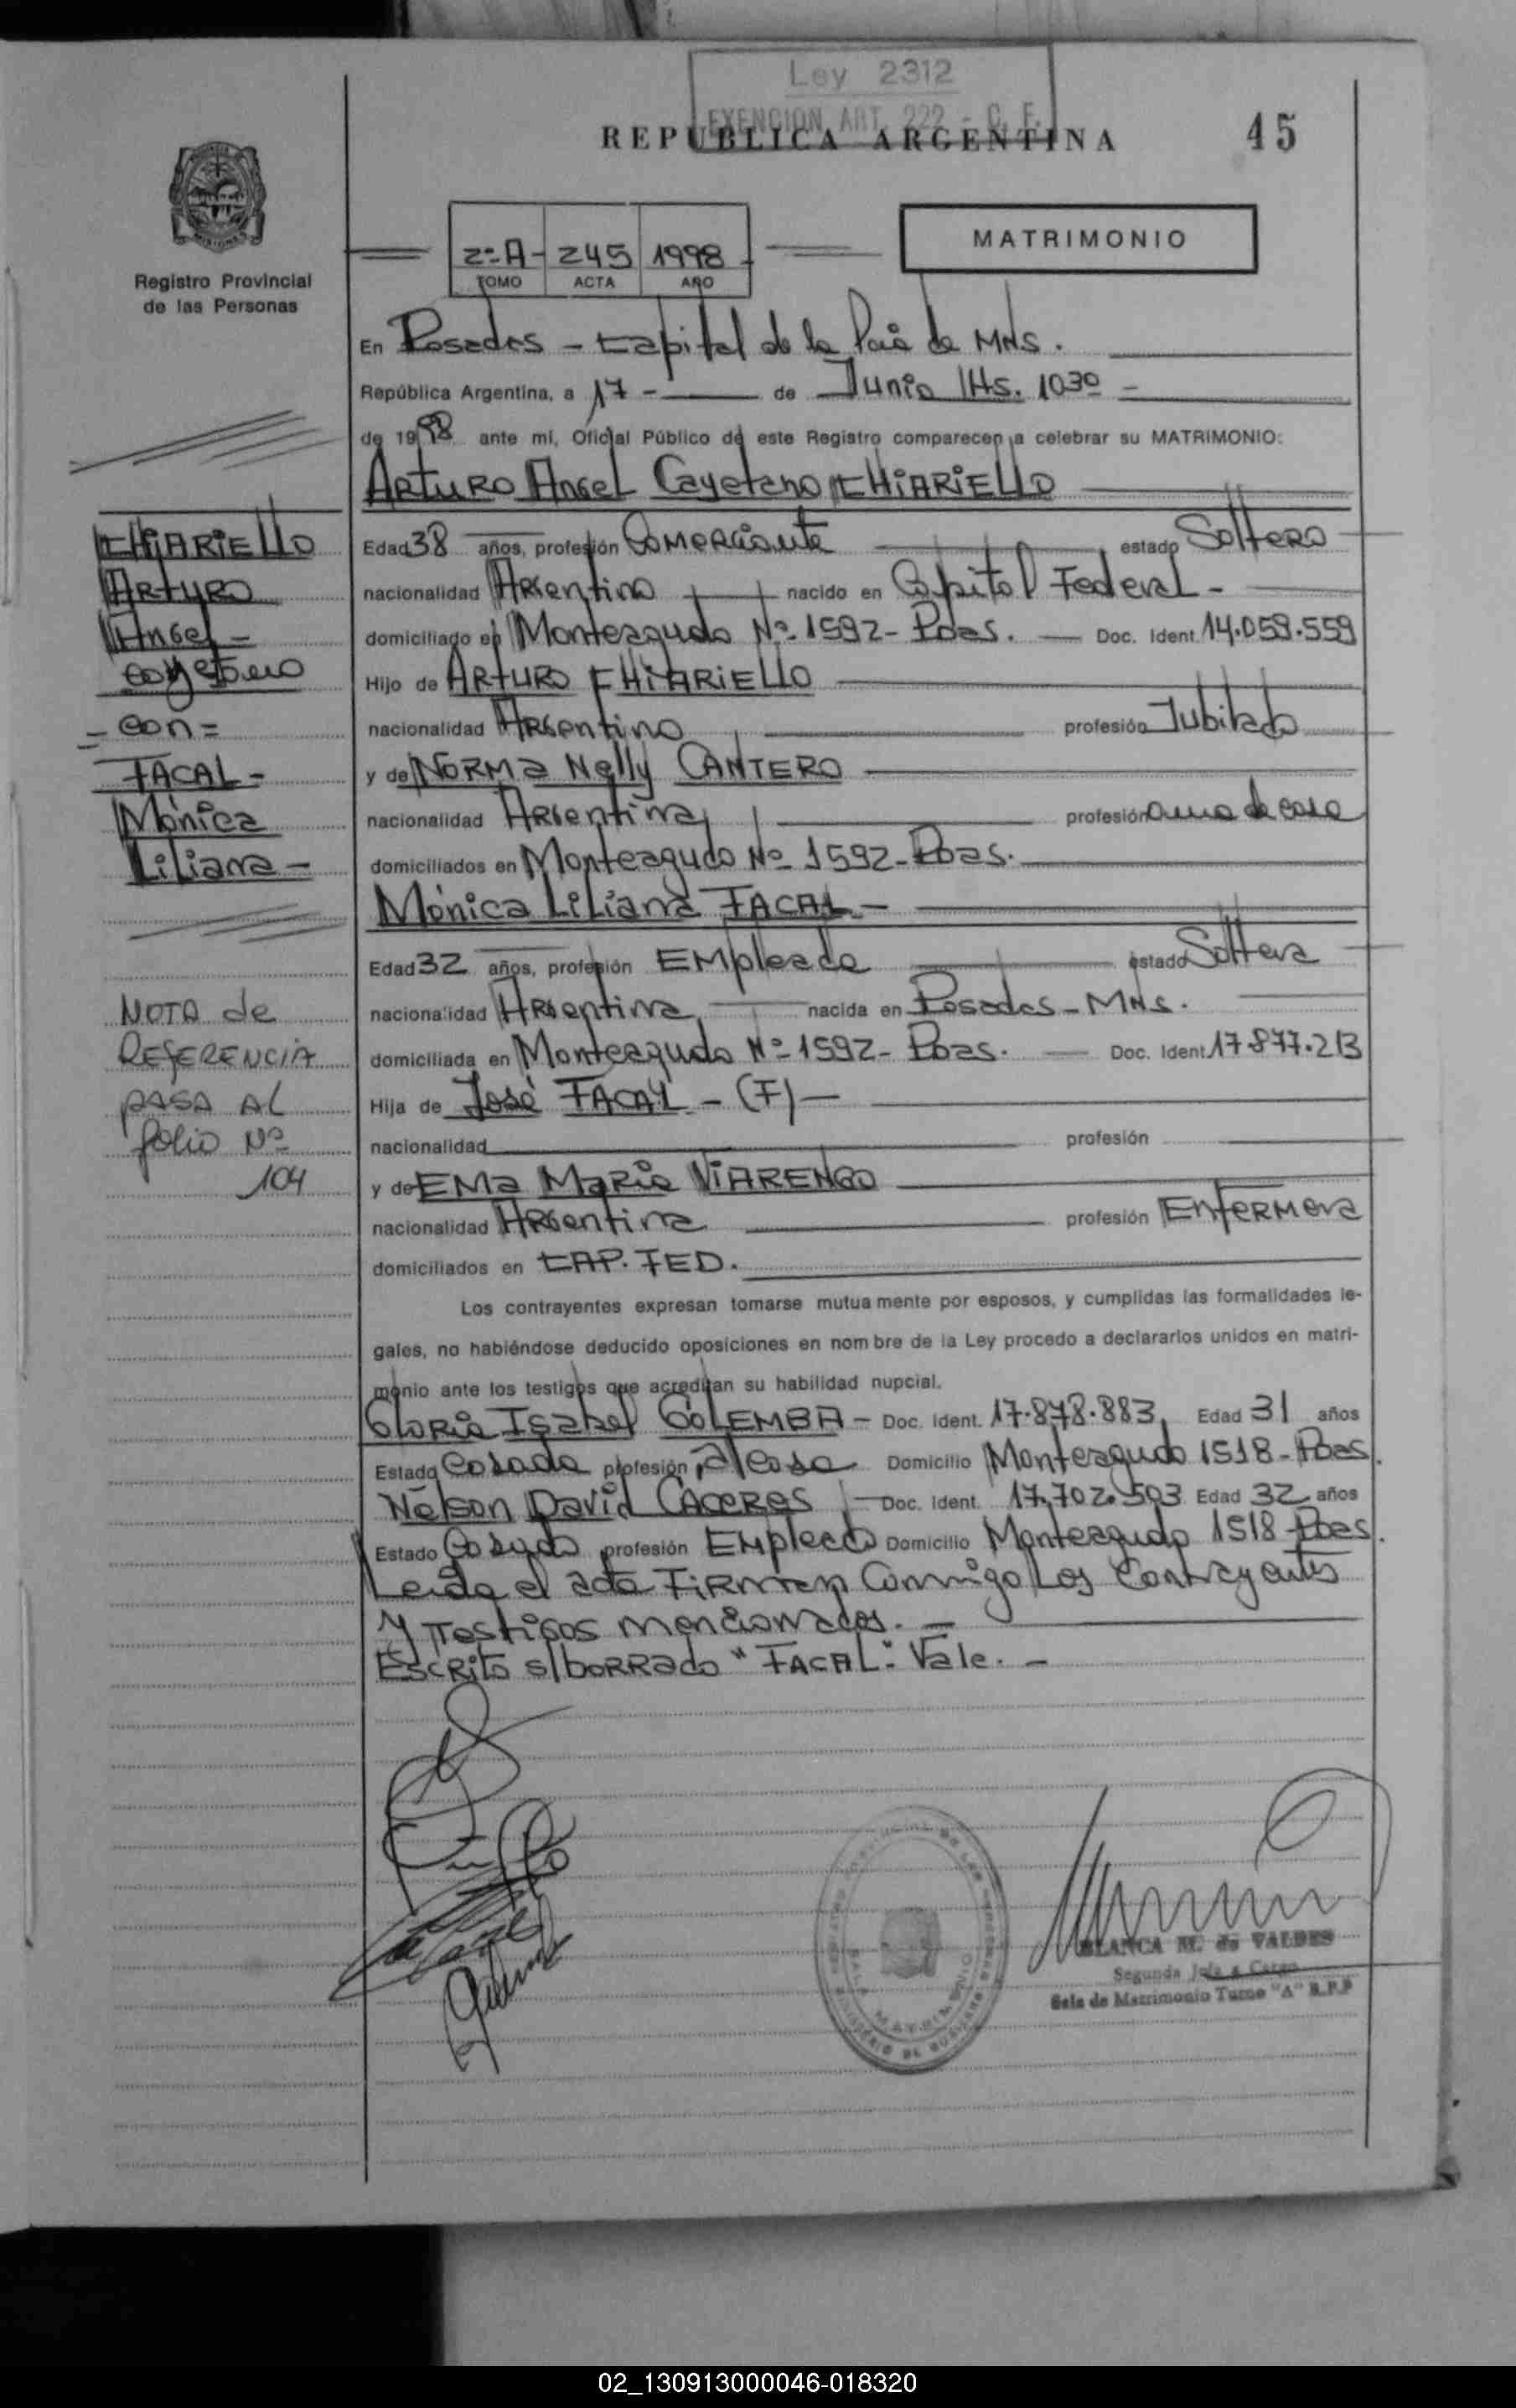 Ley 2312
EXENCION ART. 222 - C. F.
REPUBLICA ARGENTINA
45
MISIONES
Registro Provincial
de las Personas
2º A - 245 1998
TOMO ACTA AÑO
MATRIMONIO
En Posadas - Capital de la Pcia de MNS.
República Argentina, a 17 - de Junio /Hs. 1030 -
de 1998 ante mí, Oficial Público de este Registro comparecen a celebrar su MATRIMONIO:
ARTURO Angel Cayetano CHIARIELLO
Edad 38 años, profesión COMERCiante estado SolteRO
nacionalidad ARgentino nacido en Capital Federal -
domiciliado en Monteagudo Nº 1592 - Pdas. - Doc. Ident. 14.059.559
Hijo de ARTURO CHIARIELLO
nacionalidad ARgentino profesión Jubilado
y de NORMA Nelly CANTERO
nacionalidad ARgentina profesión ama de casa
domiciliados en Monteagudo Nº 1592 - Pdas.
Mónica Liliana FACAL -
Edad 32 años, profesión EMpleada estado Soltera
nacionalidad ARgentina nacida en Posadas - MNS.
domiciliada en Monteagudo Nº 1592 - Pdas. - Doc. Ident. 17.877.213
Hija de José FACAL - (F) -
nacionalidad profesión
y de EMA MaRia VIARENGO
nacionalidad ARgentina profesión EnfERMera
domiciliados en CAP. FED.
Los contrayentes expresan tomarse mutua mente por esposos, y cumplidas las formalidades le-
gales, no habiéndose deducido oposiciones en nom bre de la Ley procedo a declararlos unidos en matri-
monio ante los testigos que acreditan su habilidad nupcial.
GloRia Isabel GOLEMBA - Doc. Ident. 17.878.883, Edad 31 años
Estado Casada profesión a/casa Domicilio Monteagudo 1518 - Pdas.
Nelson David CACERES - Doc. Ident. 17.702.503 Edad 32 años
Estado Casado profesión EMpleado Domicilio Monteagudo 1518 - Pdas.
Leida el acta FiRman Conmigo Los Contrayentes
y Testigos mencionados. -
EscRito s/boRRado "FACAL": Vale. -
CHIARIELLO
ARTURO
Angel -
Cayetano
- con =
FACAL -
Mónica
Liliana -
NOTA de
REFERENCIA
PASA AL
folio Nº
104
BLANCA M. de VALDES
Segunda Jefa a Cargo
Sala de Matrimonio Turno "A" R.P.P
02_130913000046-018320